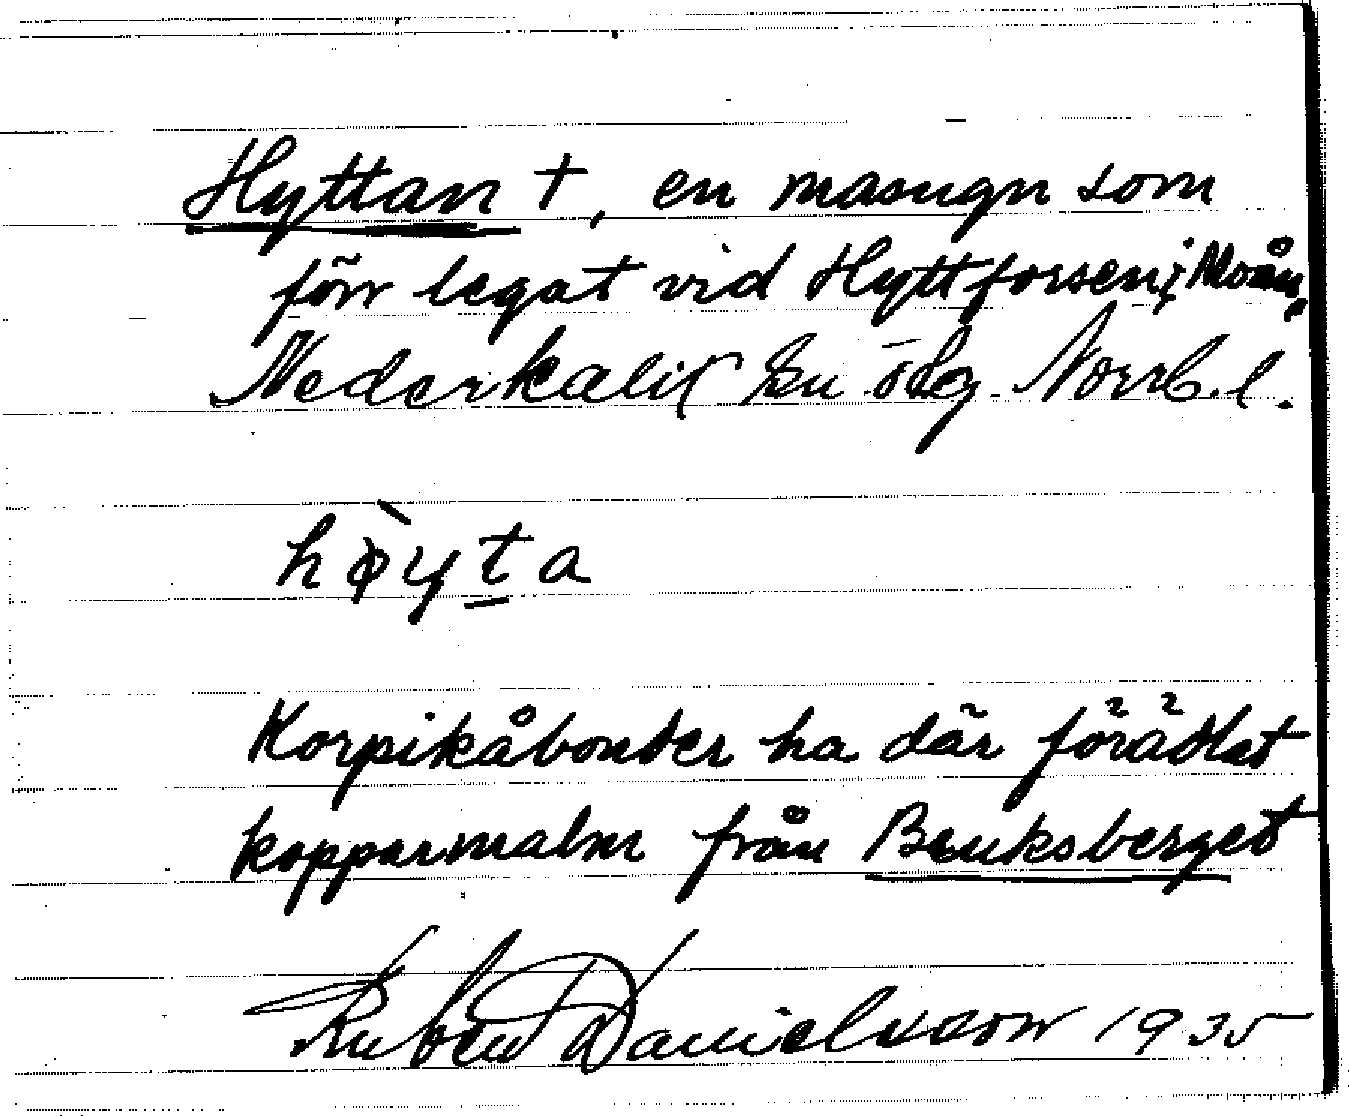 Hyttan †, en masugn som
förr legat vid Hyttforsen i Moån,
Nederkalix sn ö Norrb. l.
hø̀yta
Korpikåbönder ha där förädlat
kopparmalm från Bänksberget
Ruben Danielsson 1935